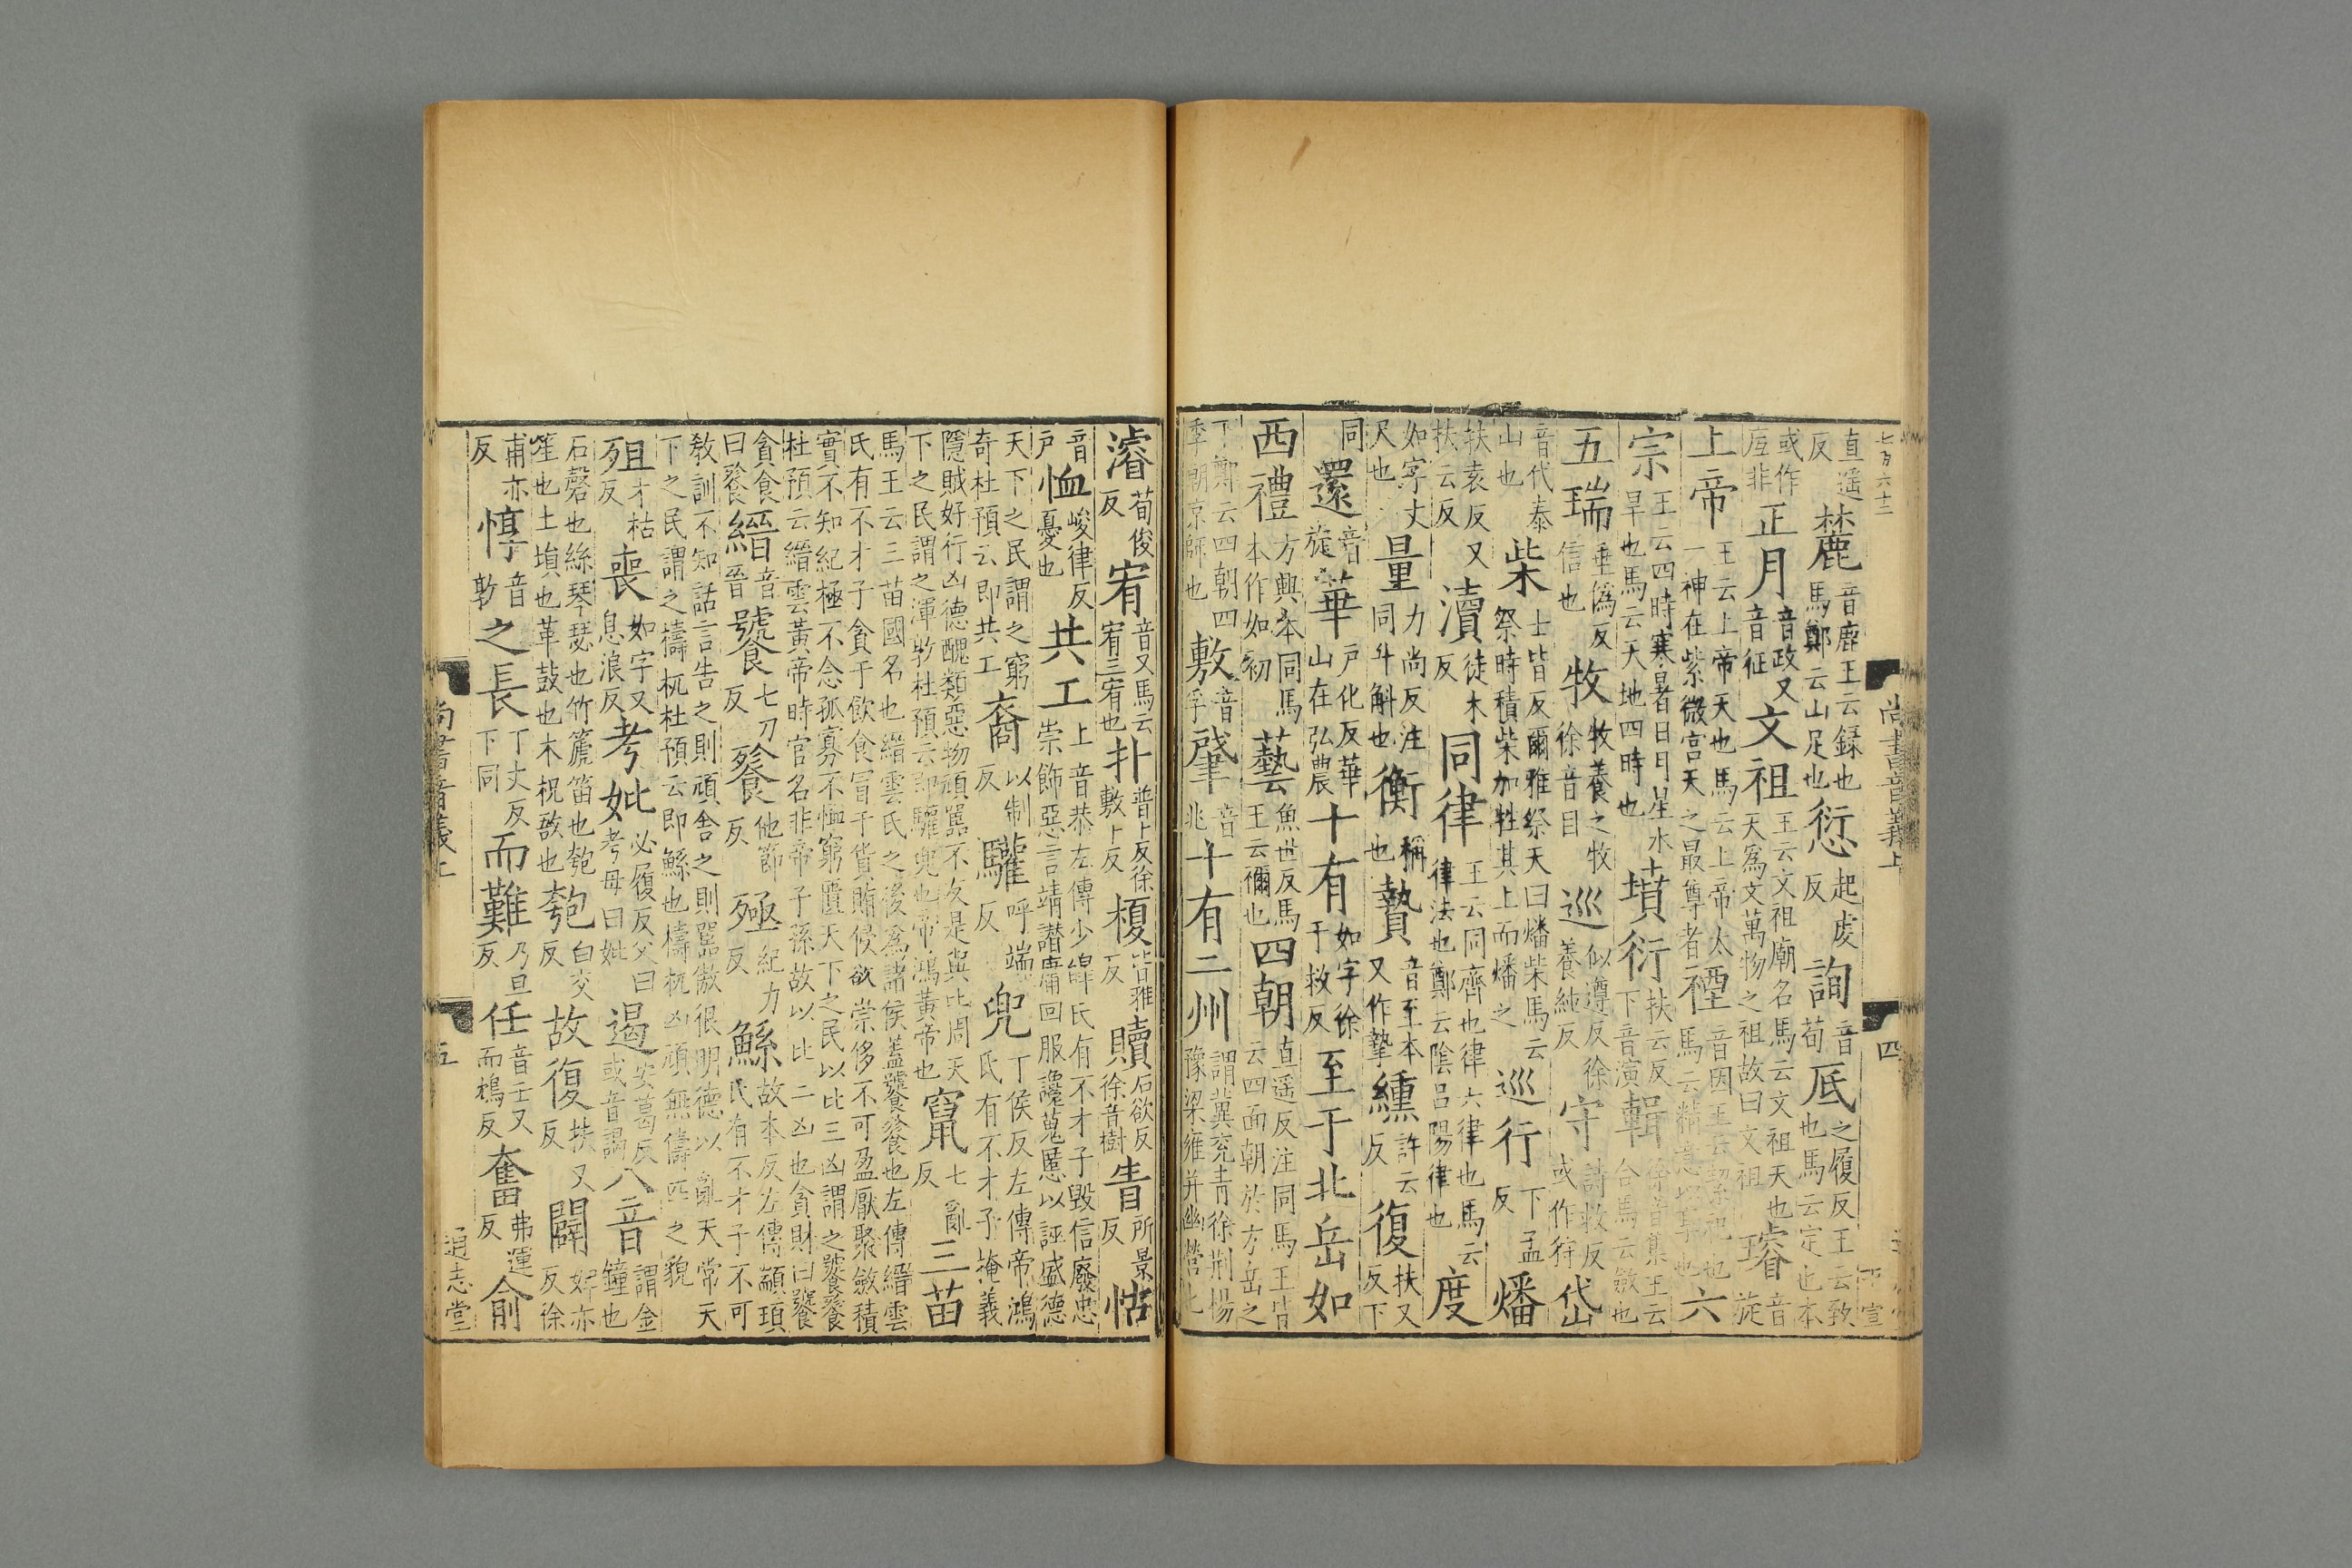 七百六十三
直遥反麓音鹿王云録也馬鄭云山足也愆起虔反詢音荀厎之履反王云致也馬云定也本
或作庢非正月音政又音征文祖王云文祖廟名馬云文祖天也天爲文萬物之祖故曰文祖璿音旋
上帝王云上帝天也馬云上帝太一神在紫微宫天之最尊者禋音因王云絜祀也馬云精意以享也六
宗王云四時寒暑日月星水旱也馬云天地四時也墳衍扶云反下音演輯徐音集王云合馬云斂也
五瑞垂僞反信也牧牧養之牧徐音目巡似遵反徐養純反守詩救反或作狩岱
音代泰山也柴士皆反爾雅祭天曰燔柴馬云祭時積柴加牲其上而燔之巡行下孟反燔
扶袁反又扶云反瀆徒木反同律王云同齊也律六律也馬云律法也鄭云陰呂陽律也度
如字丈尺也量力尚反注同斗斛也衡稱也贄音至本又作摯纁許云反復扶又反下
同還音旋華戶化反華山在弘農十有如字徐于救反至于北岳如
西禮方興本同馬本作如初藝魚世反馬王云禰也四朝直遥反注同馬王皆云四面朝於方岳之
下鄭云四朝四季朝京師也敷音孚肈音兆十有二州謂冀兖青徐荆揚豫梁雍并幽營也
尚書音義上 四
濬荀俊反宥音又馬云宥三宥也扑普卜反徐敷卜反榎皆雅反贖石欲反徐音樹眚所景反怙
音戶恤峻律反憂也共工上音恭左傳少皥氏有不才子毀信廢忠崇飾惡言靖譖庸回服讒蒐慝以誣盛德
天下之民謂之窮奇杜預云即共工裔以制反驩呼端反兜丁侯反左傳帝鴻氏有不才子掩義
隱賊好行凶德醜類惡物頑嚚不友是與比周天下之民謂之渾敦杜預云即驩兜也帝鴻黄帝也竄七亂反三苗
馬王云三苗國名也縉雲氏之後爲諸侯蓋饕餮也左傳縉雲氏有不才子貪于飲食冒于貨賄侵欲崇侈不可盈厭聚斂積
實不知紀極不念孤寡不恤窮匱天下之民以比三凶謂之饕餮杜預云縉雲黄帝時官名非帝子孫故以比二凶也貪財曰饕
貪食曰餮縉音晉饕七刀反餮他節反殛紀力反鯀故本反左傳顓頊氏有不才子不可
教訓不知話言告之則頑舍之則嚚傲很明德以亂天常天下之民謂之檮杌杜預云即鯀也檮杌凶頑無儔匹之貌
殂才枯反喪如字又息浪反考妣必履反父曰考母曰妣遏安葛反或音謁八音謂金鐘也
石磬也絲琴瑟也竹篪笛也匏笙也土塤也革鼓也木柷敔也匏白交反故復扶又反闢婢亦反徐
甫亦反惇音敦之長丁丈反下同而難乃旦反任音壬又而鴆反奮弗運反俞
尚書音義上 五 通志堂